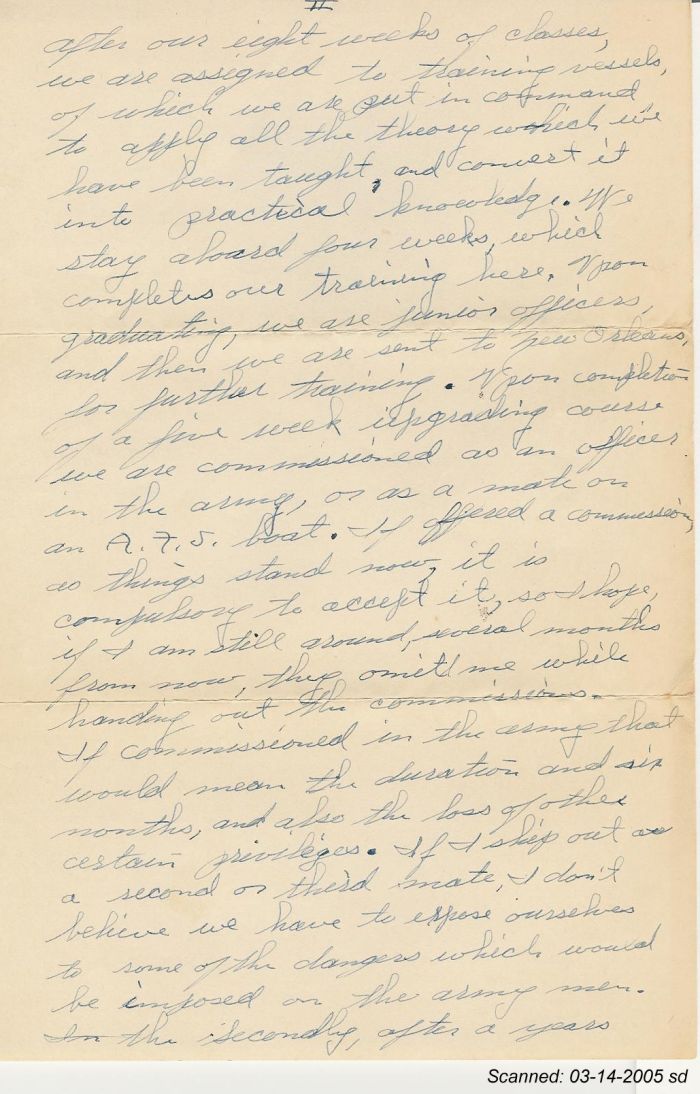 II
after our eight weeks of classes,
we are assigned to training vessels,
of which we are put in command
to apply all the theory which we
have been taught, and convert it
into practical knowledge. We
stay aboard four weeks, which
completes our training here. Upon
graduating, we are junior officers,
and then we are sent to New Orleans,
for further training. Upon completion
of a five week upgrading course
we are commissioned as an officer
in the army, or as a mate on
an A.T.S. boat. If offered a commission,
as things stand now, it is
compulsory to accept it, so I hope,
if I am still around, several months
from now, they omit me while
handing out the commissions.
If commissioned in the army that
would mean the duration and six
months, and also the loss of other
certain privileges. If I ship out as
a second or third mate, I don't
believe we have to expose ourselves
to some of the dangers which would
be imposed on the army men.
In the secondly, after a years
Scanned: 03-14-2005 sd